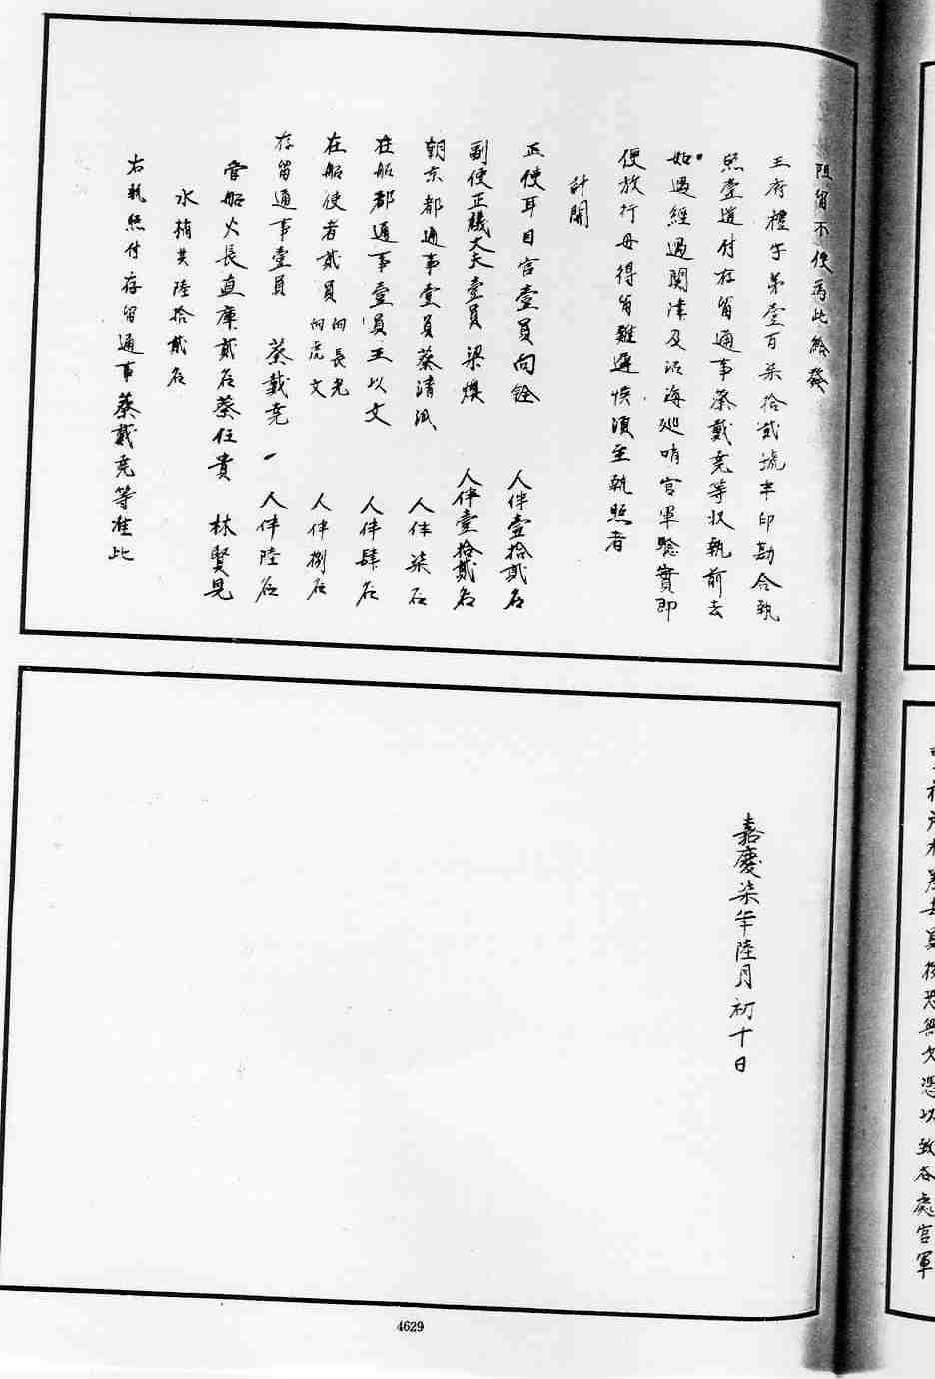 阻留不便爲此給發
王府禮字第壹百柒拾貳號半印勘合執
照壹道付存留通事蔡戴堯等收執前去
如遇經過関津及沿海巡哨官軍驗實即
便放行毋得留難遲悞須至執照者
計開
正使耳目官壹員向銓 人伴壹拾貳名
副使正議大夫壹員梁煥 人伴壹拾貳名
朝京都通事壹員蔡清派 人伴柒名
在船都通事壹員王以文 人伴肆名
在船使者貳員 向長光 向虎文 人伴捌名
存留通事壹員 蔡戴堯 人伴陸名
管船火長直庫貳名蔡任貴 林賢見
水梢共陸拾貳名
右執照付存留通事蔡戴堯等准此
嘉慶柒年陸月初十日
後恐無文憑以致各處官軍
4629